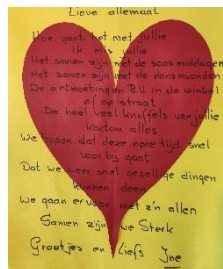 Lieve allemaal
Hoe gaat het met jullie
Ik mis jullie
Het samen zijn met de soos middagen
Het samen zijn met de dansavonden
De ontmoetingen B.U in de winkel
of op straat
De heel veel knuffels van jullie
Kortom alles
We hopen dat deze nare tijd snel
voor bij gaat
Dat we weer snel gezellige dingen
kunnen doen
We gaan ervoor met z'n allen
Samen zijn we Sterk
Groetjes en Liefs Ine